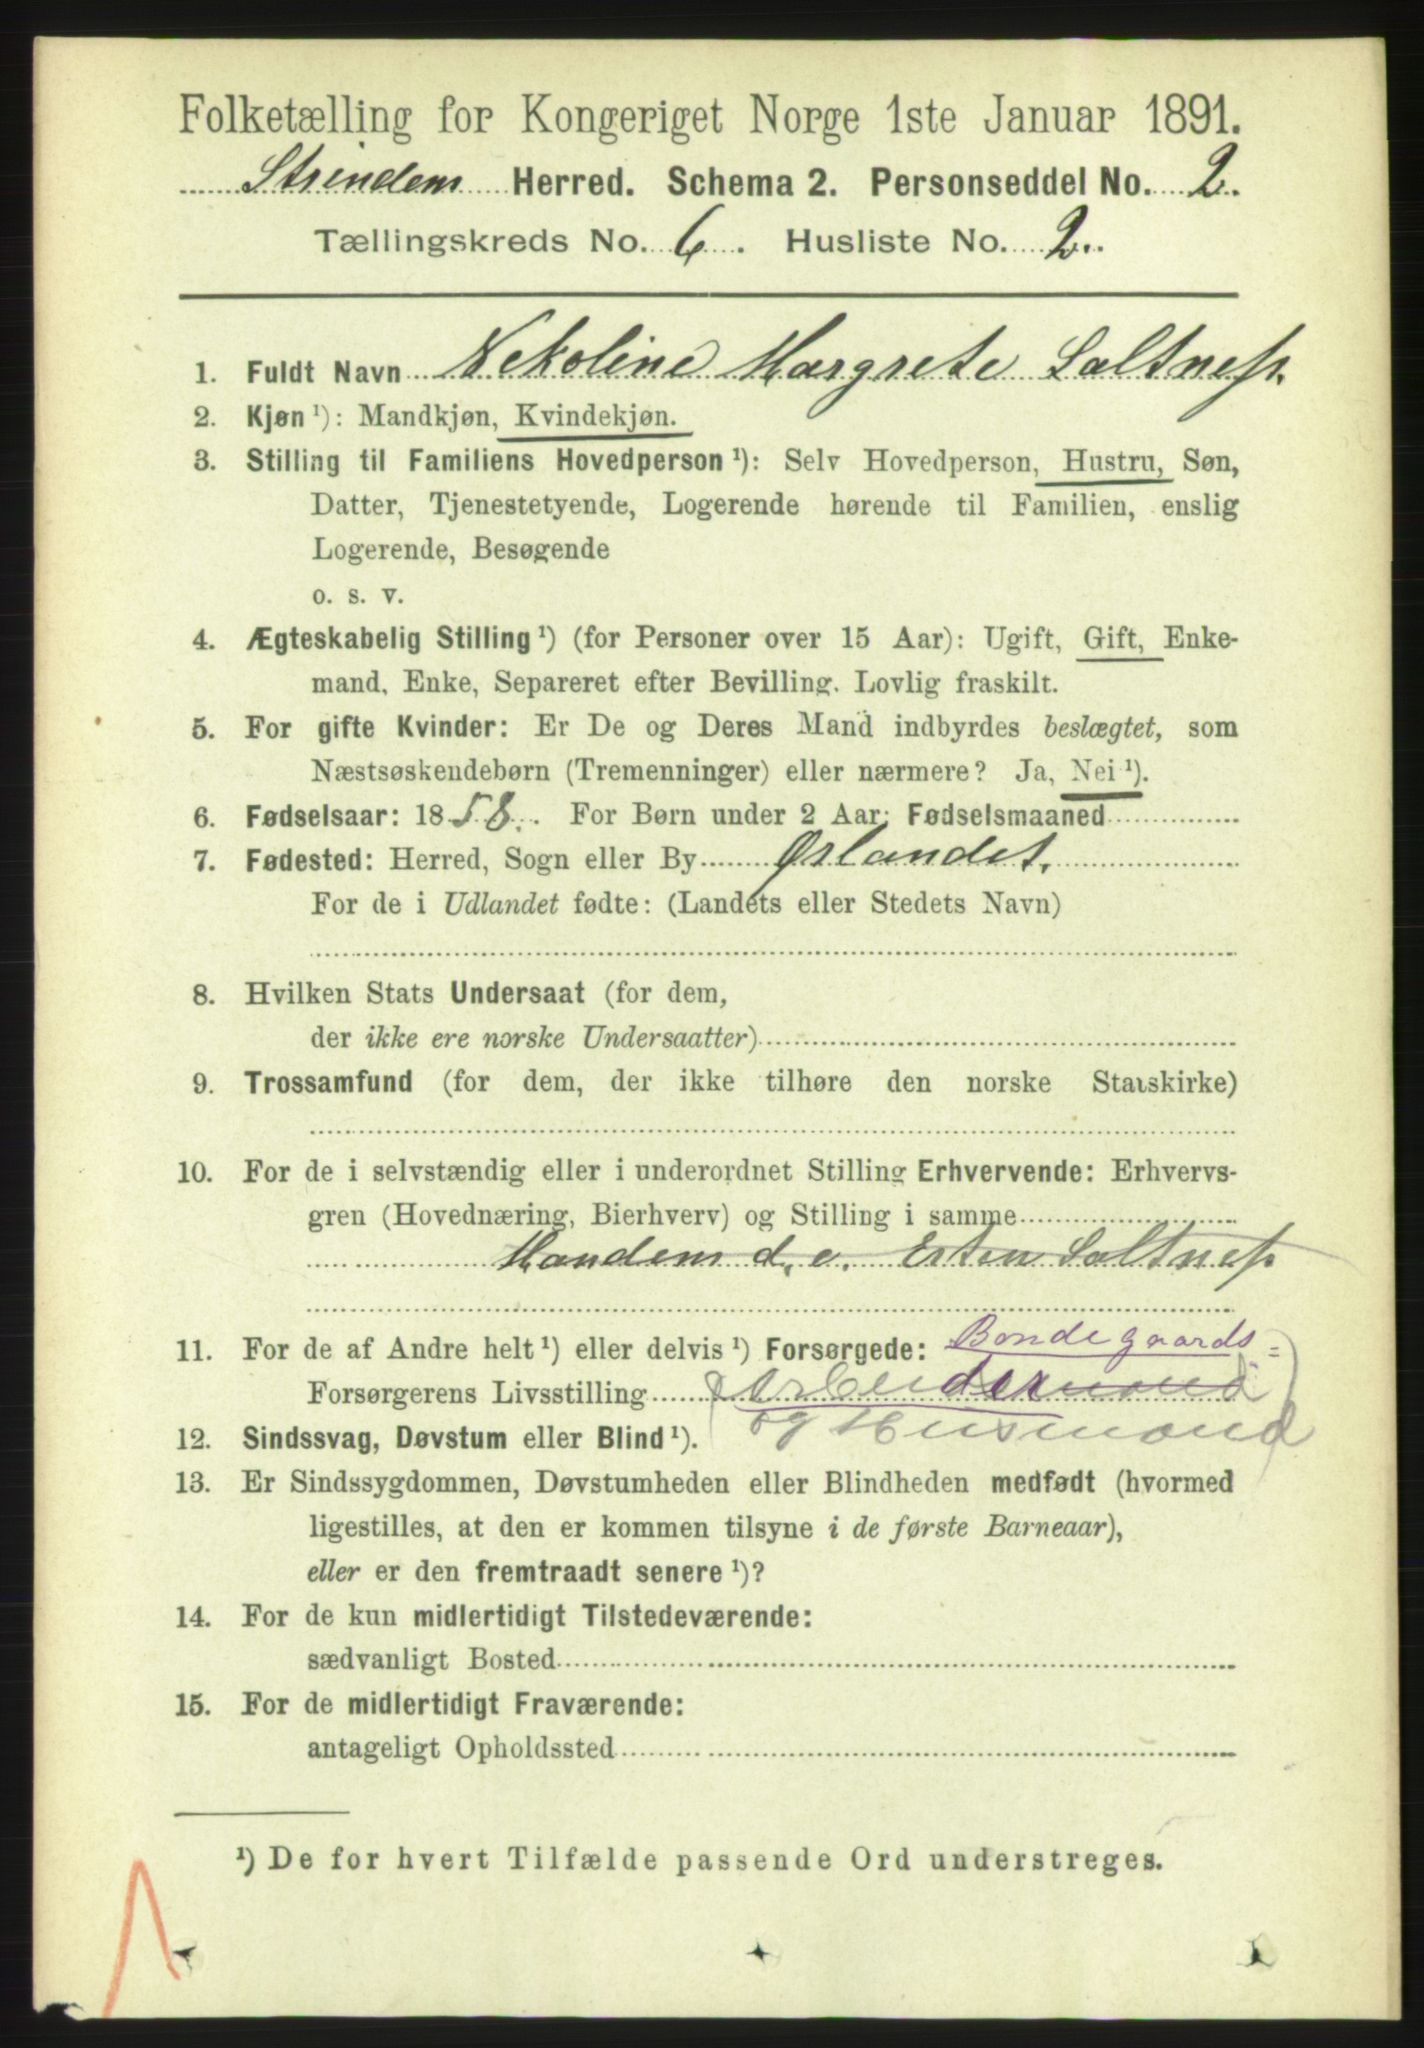 Folketælling for Kongeriget Norge 1ste Januar 1891.
Strinden Herred. Schema 2. Personseddel No. 2.
Tællingskreds No. 6. Husliste No. 2.
1. Fuldt Navn Nekoline Margrete Saltness.
2. Kjøn ¹): Mandkjøn, Kvindekjøn.
3. Stilling til Familiens Hovedperson ¹): Selv Hovedperson, Hustru, Søn,
Datter, Tjenestetyende, Logerende hørende til Familien, enslig
Logerende, Besøgende
o. s. v.
4. Ægteskabelig Stilling ¹) (for Personer over 15 Aar): Ugift, Gift, Enke-
mand, Enke, Separeret efter Bevilling. Lovlig fraskilt.
5. For gifte Kvinder: Er De og Deres Mand indbyrdes beslægtet, som
Næstsøskendebørn (Tremenninger) eller nærmere? Ja, Nei ¹).
6. Fødselsaar: 1858. For Børn under 2 Aar: Fødselsmaaned
7. Fødested: Herred, Sogn eller By Ørlandet.
For de i Udlandet fødte: (Landets eller Stedets Navn)
8. Hvilken Stats Undersaat (for dem,
der ikke ere norske Undersaatter)
9. Trossamfund (for dem, der ikke tilhøre den norske Statskirke)
10. For de i selvstændig eller i underordnet Stilling Erhvervende: Erhvervs-
gren (Hovednæring, Bierhverv) og Stilling i samme
Manden d. e. Esten Saltness
11. For de af Andre helt ¹) eller delvis ¹) Forsørgede: Bondegaards=
Forsørgerens Livsstilling (Arbeidermand
12. Sindssvag, Døvstum eller Blind ¹). og Husmand)
13. Er Sindssygdommen, Døvstumheden eller Blindheden medfødt (hvormed
ligestilles, at den er kommen tilsyne i de første Barneaar),
eller er den fremtraadt senere ¹)?
14. For de kun midlertidigt Tilstedeværende:
sædvanligt Bosted
15. For de midlertidigt Fraværende:
antageligt Opholdssted
¹) De for hvert Tilfælde passende Ord understreges.